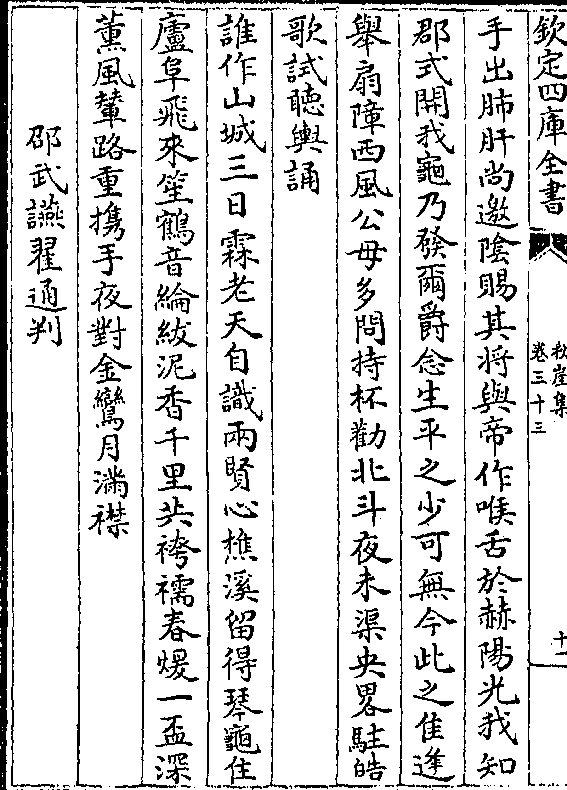 欽定四庫全書
秋崖集
卷三十三
十一
手出肺肝尚邀陰賜其將與帝作喉舌於赫陽光我知
郡式開我龜乃發爾爵念生平之少可無今此之佳逢
舉扇障西風公毋多問持杯勸北斗夜未渠央畧駐皓
歌試聽輿誦
誰作山城三日霖老天自識兩賢心樵溪留得琴龜住
廬阜飛來笙鶴音綸紱泥香千里共袴襦春煖一盃深
薰風輦路重攜手夜對金鑾月滿襟
邵武讌翟通判